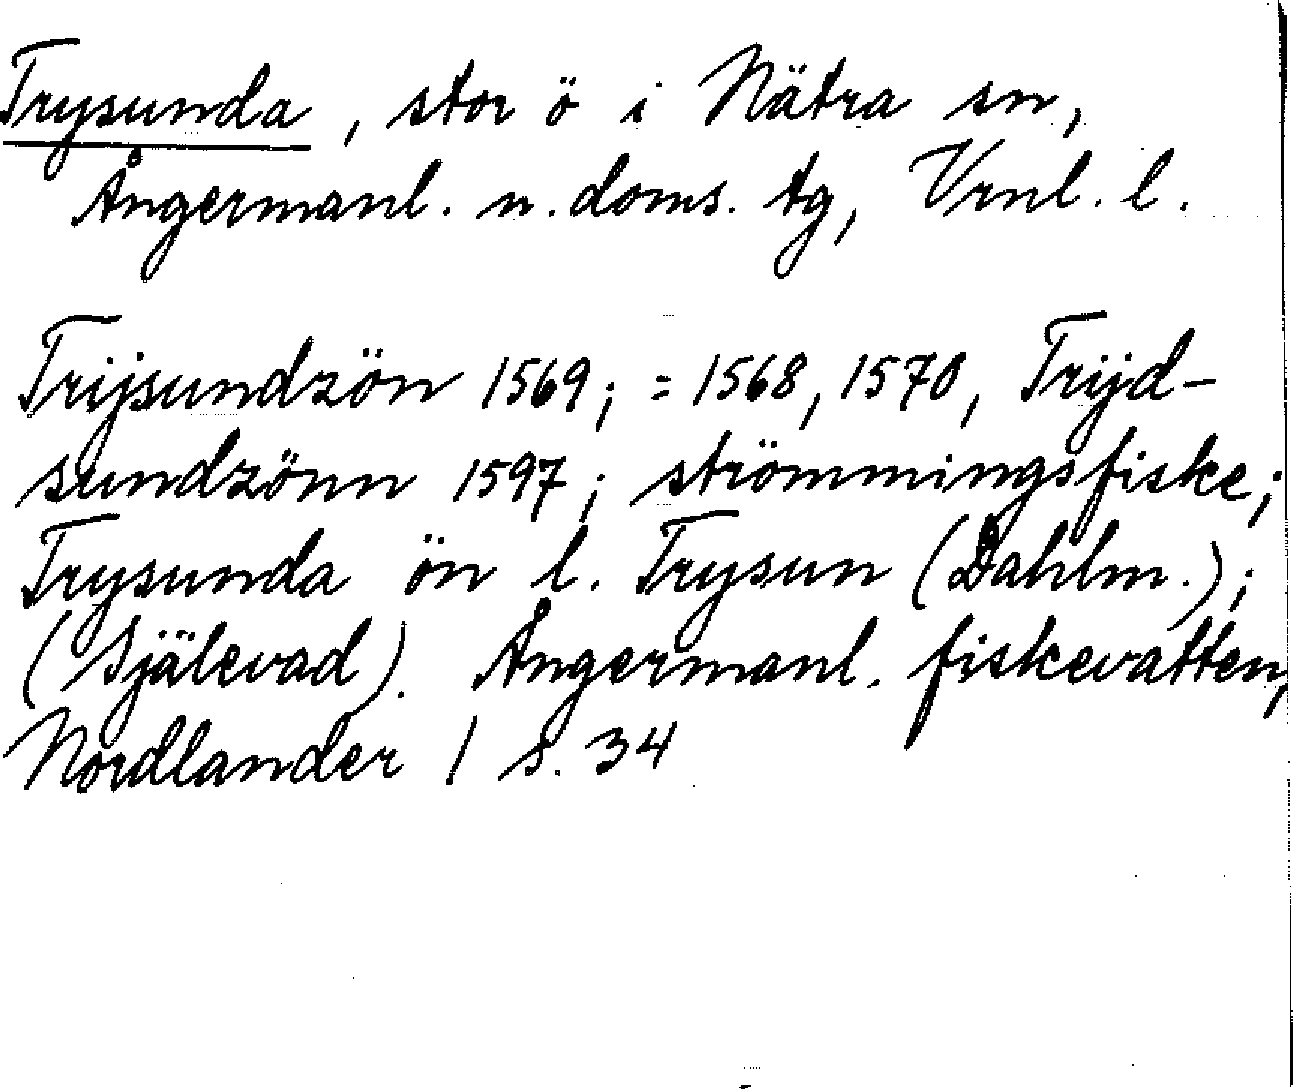 Trysunda, stor ö i Nätra sn,
Ångermanl. n. doms. tg, Vrnl. l.
Trijsundzön 1569; = 1568, 1570, Trijd-
sundzönn 1597; strömmingsfiske;
Trysunda ön l. Trysun (Dahlm.);
(Själevad). Ångermanl. fiskevatten,
Nordlander 1 s. 34